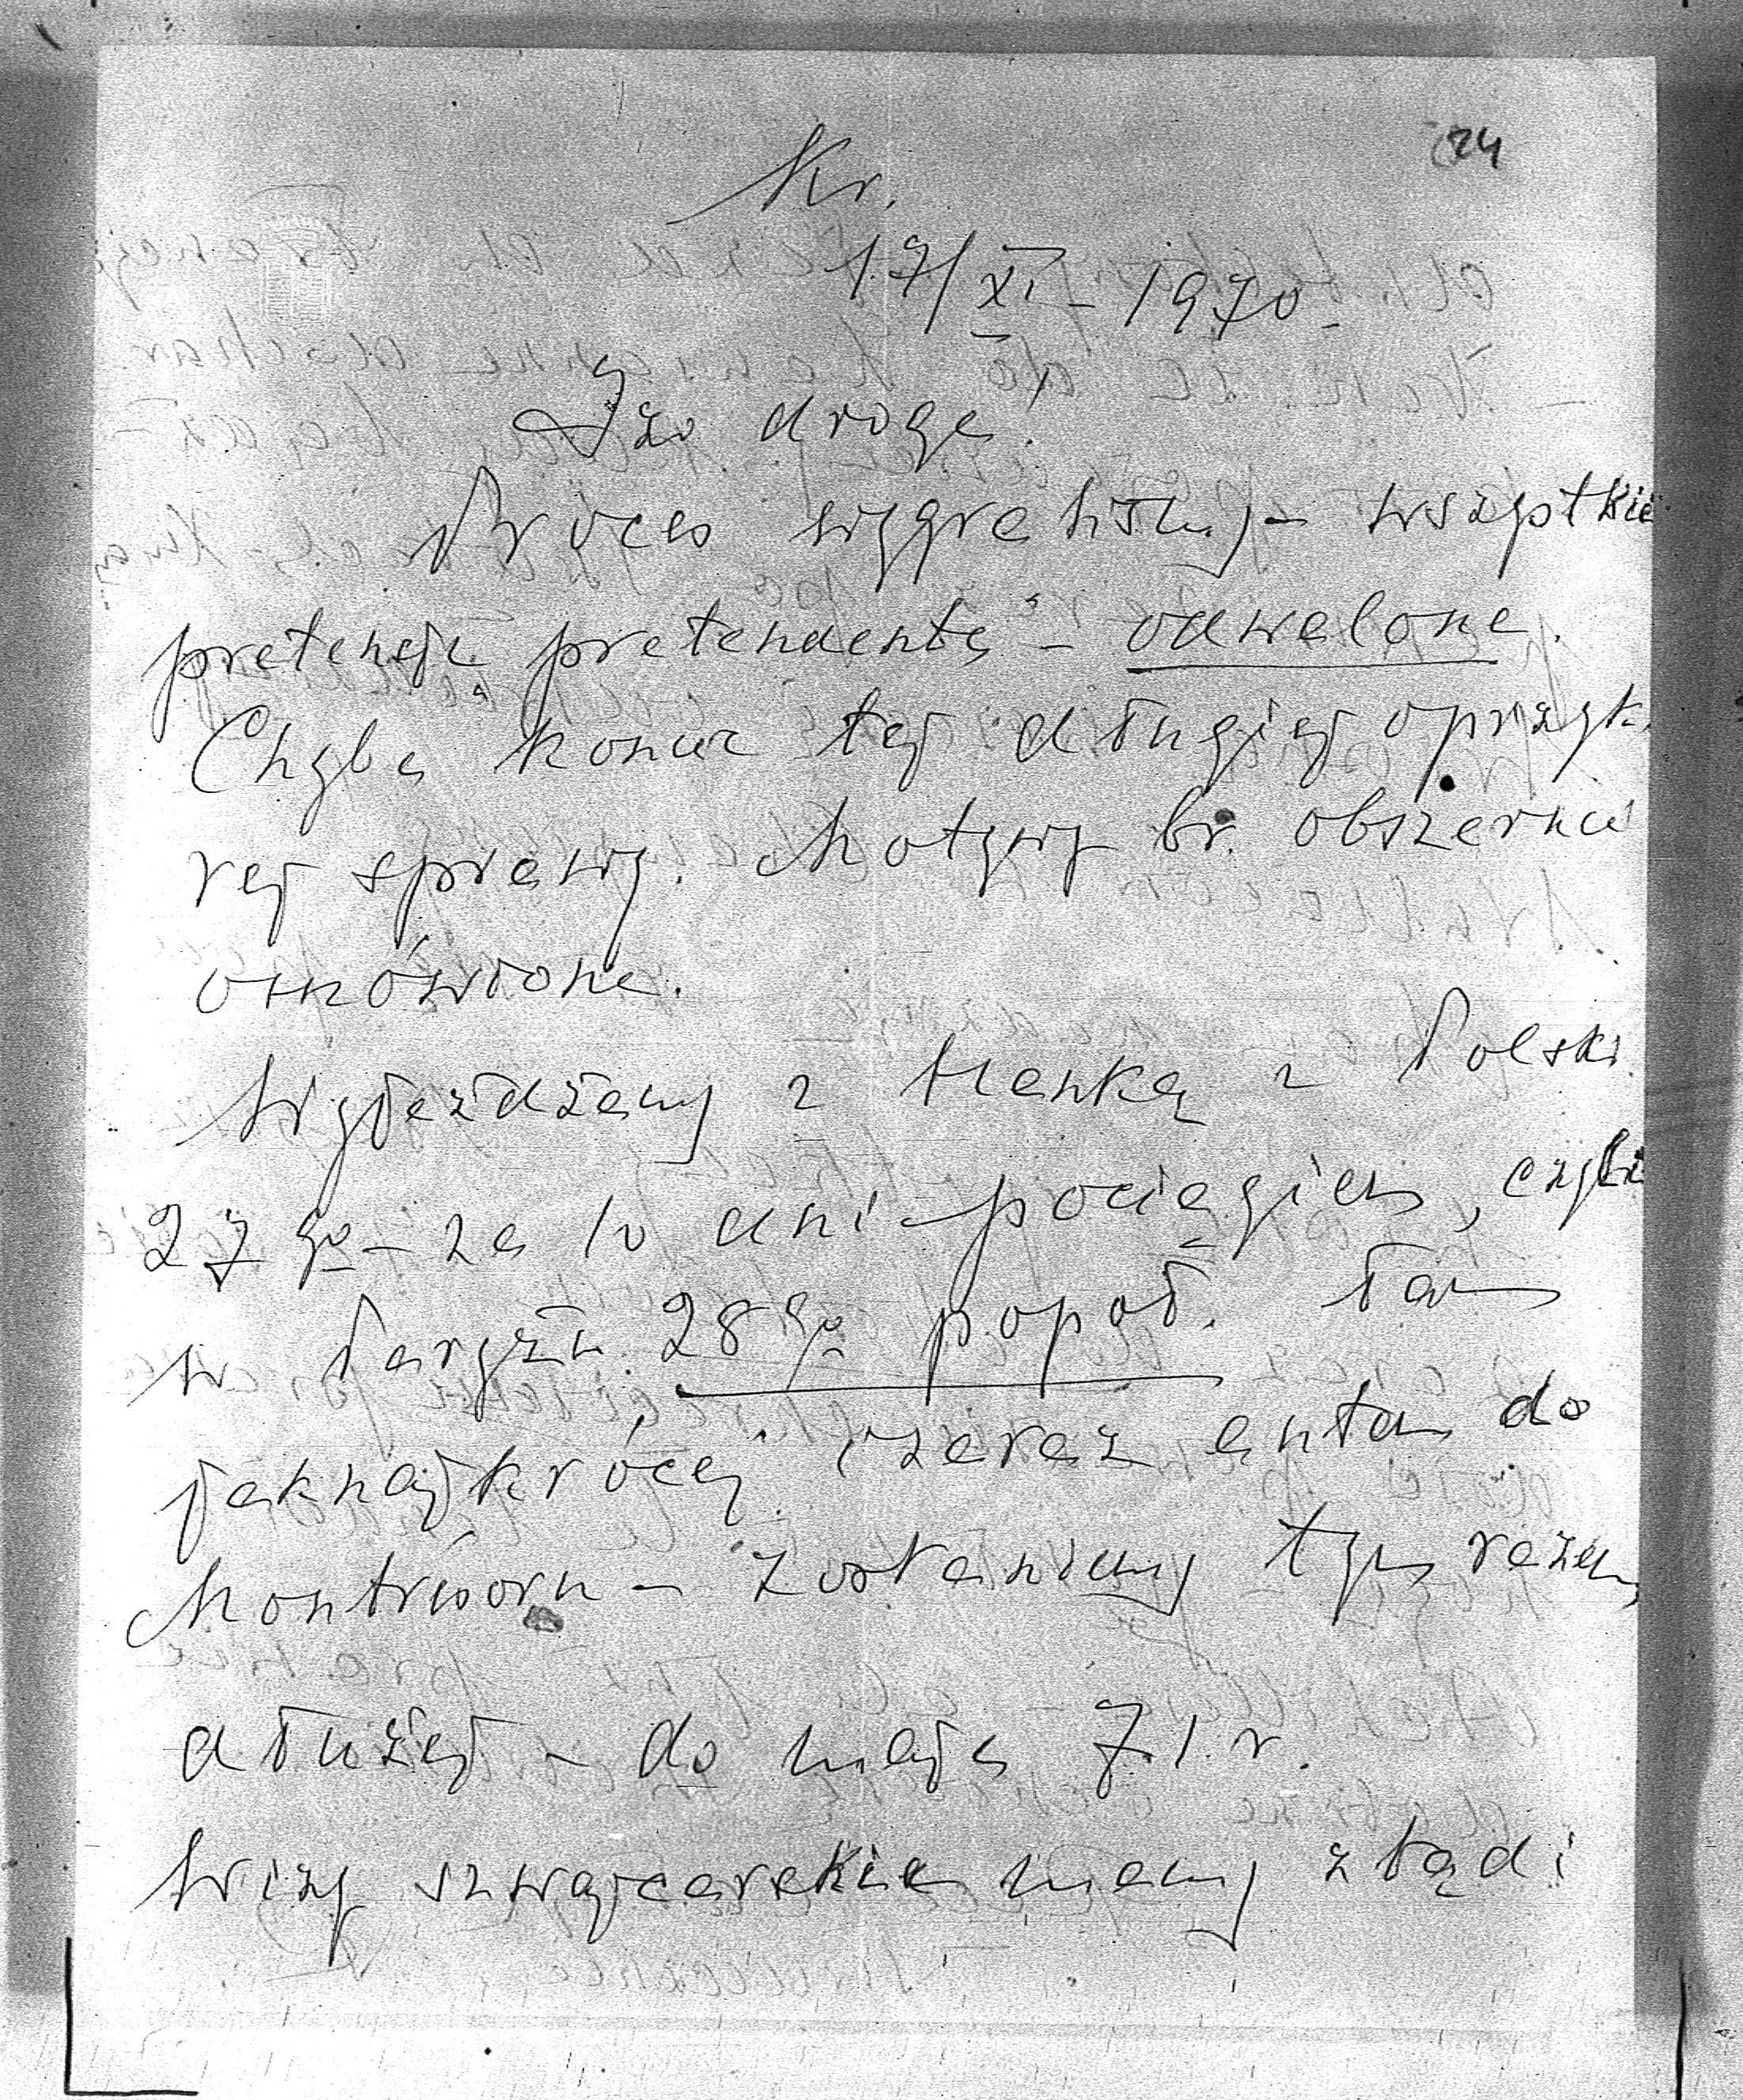 24
Kr.
17/XI – 1970.
Izo droga!
Proces wygraliśmy – wszystkie
pretensje pretendenta – odwalone.
Chyba koniec tej długiej i przyk-
rej sprawy. Motywy br. obszernie
omówione.
Wyjeżdżamy z Hanką z Polski
27 go – za 10 dni – pociągiem, czyli
w Paryżu 28 go popoł. Tam
jaknajkrócej i zaraz autem do
Montrésoru – Zostaniemy tym razem
dłużej – do maja 71. r.
Wizy szwajcarskie mamy ztąd i